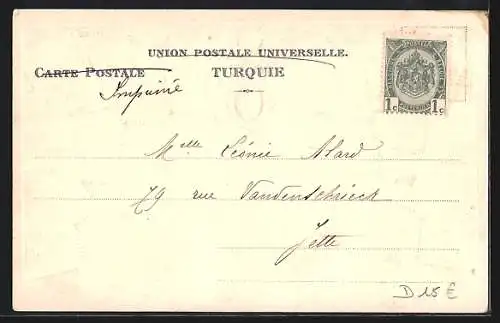 UNION POSTALE UNIVERSELLE.
CARTE POSTALE TURQUIE
Imprimé
1c 1c
Melle Léonie Alard
79 rue Vandenschrieck
Jette
D 15 €